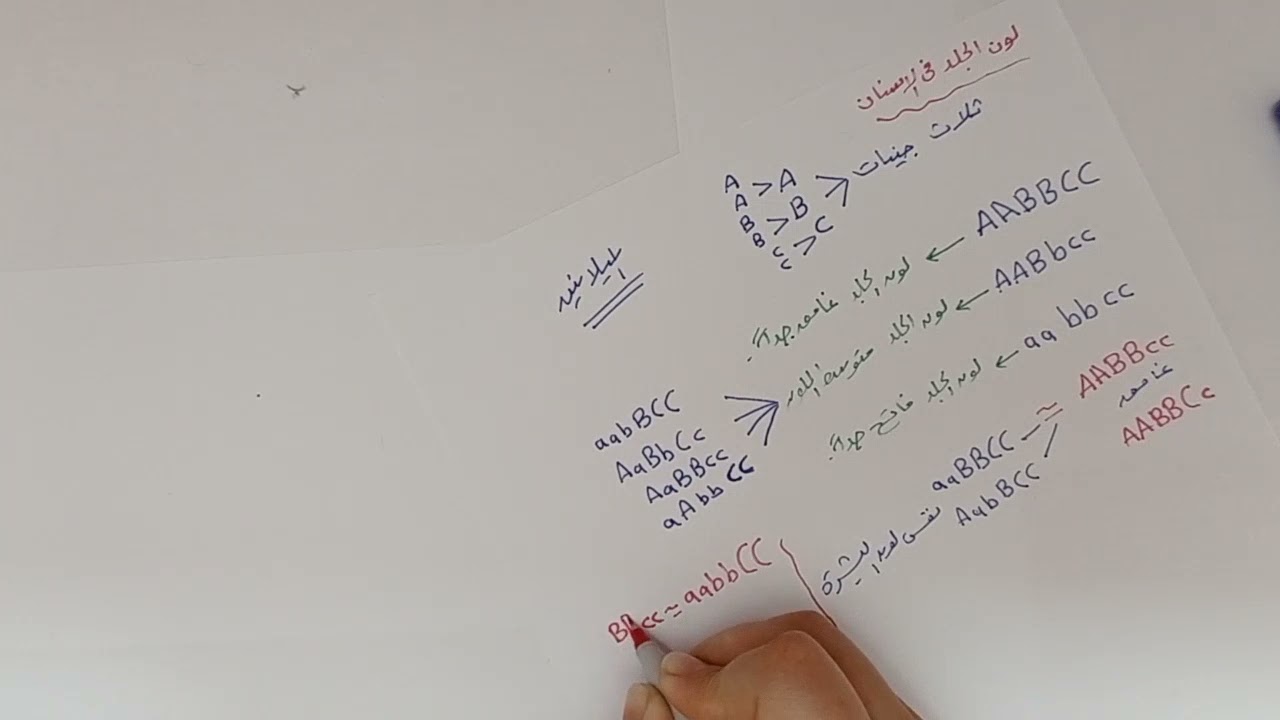 لون الجلد في الإنسان
ثلاث جينات
A > A
A
B > B
B
C > C
C
AABBCC ← لون الجلد غامق جداً
الميلانين
AABbcc ← لون الجلد متوسط اللون
aabbcc ← لون الجلد فاتح جداً
aabBCC
AaBbCc
AaBBcc
aAbbCC
AABBcc ≈ aaBBCC
غامق
AABBCc
AabBCC
نفس لون البشرة
BBcc ≈ aabbCC